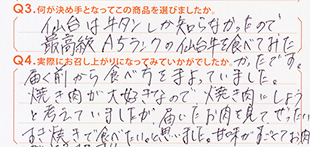 Q3.何が決め手となってこの商品を選びましたか。
仙台は牛タンしか知らなかったので
最高級A5ランクの仙台牛を食べてみた
Q4.実際にお召し上がりになってみていかがでしたか。かったです。
届く前から食べ方をまよっていました。
焼き肉が大好きなので焼き肉にしよう
と考えていましたが、届いたお肉を見てぜったい
すき焼きで食べたい。と思いました。甘味がすごくてお肉